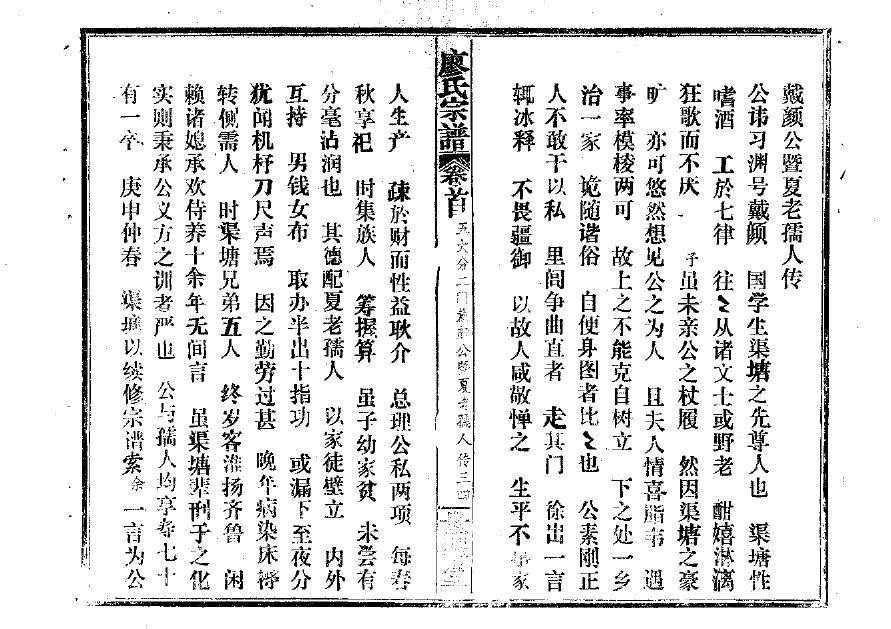 戴颜公暨夏老孺人传
公讳习渊号戴颜 国学生渠塘之先尊人也 渠塘性
嗜酒 工於七律 往〻从诸文士或野老 酣嬉淋漓
狂歌而不厌 予虽未亲公之杖履 然因渠塘之豪
旷 亦可悠然想见公之为人 且夫人情喜脂韦 遇
事率模棱两可 故上之不能克自树立 下之处一乡
治一家 诡随谐俗 自便身图者比〻也 公素刚正
人不敢干以私 里闾争曲直者 走其门 徐出一言
辄冰释 不畏疆御 以故人咸敬惮之 生平不 家
廖氏宗谱 卷首 五大分二门戴颜公暨夏老孺人传三四
人生产 疎於财而性益耿介 总理公私两项 每春
秋享祀 时集族人 筹握算 虽子幼家贫 未尝有
分毫沾润也 其德配夏老孺人 以家徒壁立 内外
互持 男钱女布 取办半出十指功 或漏下至夜分
犹闻机杼刀尺声焉 因之勤劳过甚 晚年病染床褥
转侧需人 时渠塘兄弟五人 终岁客淮扬齐鲁 闲
赖诸媳承欢侍养十余年无间言 虽渠塘辈刑于之化
实则秉承公义方之训者严也 公与孺人均享寿七十
有一卒 庚申仲春 渠塘以续修宗谱索余一言为公